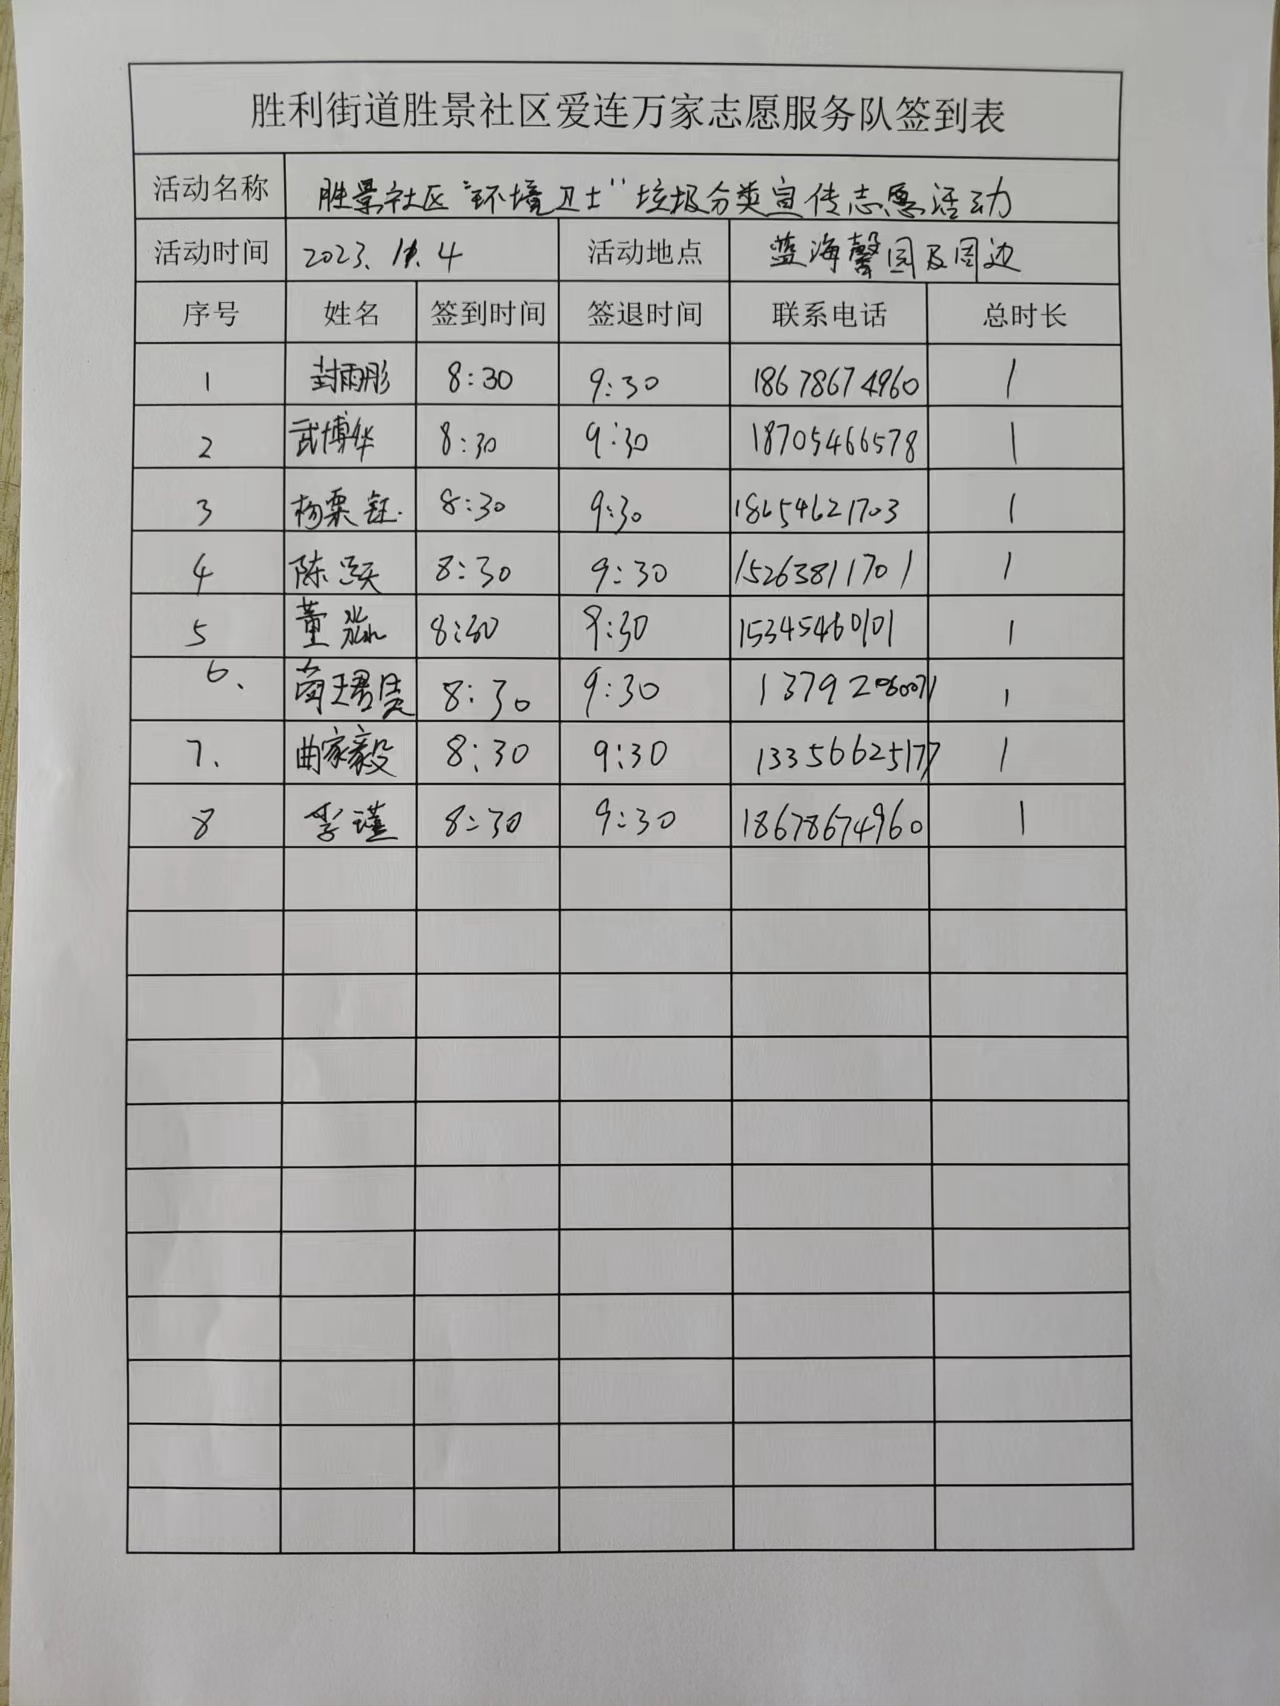 胜利街道胜景社区爱连万家志愿服务队签到表
活动名称 胜景社区“环境卫士”垃圾分类宣传志愿活动
活动时间 2023. 4 活动地点 蓝海馨园及周边
序号 姓名 签到时间 签退时间 联系电话 总时长
1 封雨彤 8:30 9:30 18678674960 1
2 武博华 8:30 9:30 18705466578 1
3 杨栗钰 8:30 9:30 18654621703 1
4 陈 8:30 9:30 15263811701 1
5 董 8:30 9:30 15345460101 1
6. 8:30 9:30 1
7. 曲家毅 8:30 9:30 13356625177 1
8 李瑾 8:30 9:30 18678674960 1